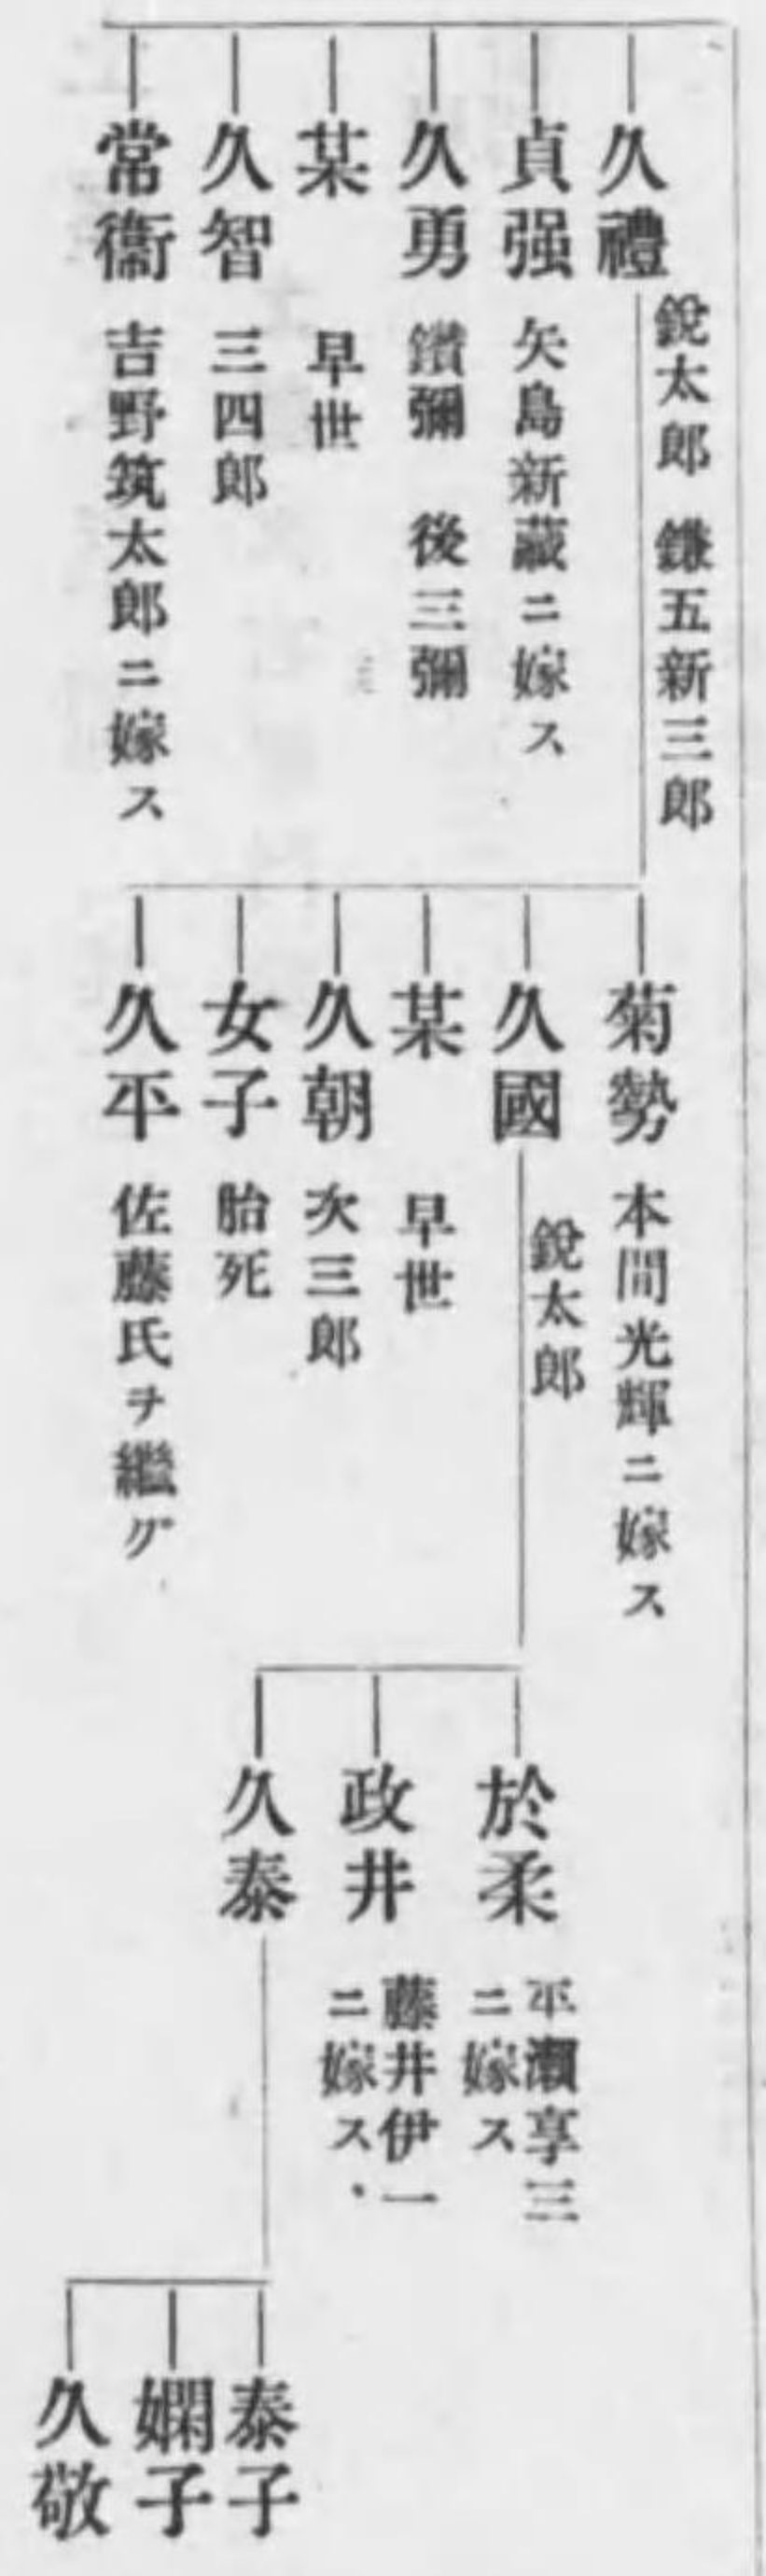 久禮 銳太郎 鎌五新三郎
貞强 矢島新藏ニ嫁ス
久勇 鑽彌 後三彌
某 早世
久智 三四郎
常衞 吉野筑太郎ニ嫁ス
菊勢 本間光輝ニ嫁ス
久國 銳太郎
某 早世
久朝 次三郎
女子 胎死
久平 佐藤氏ヲ繼グ
於柔 平瀨享三
ニ嫁ス
政井 藤井伊一
ニ嫁ス、
久泰
泰子
嫻子
久敬